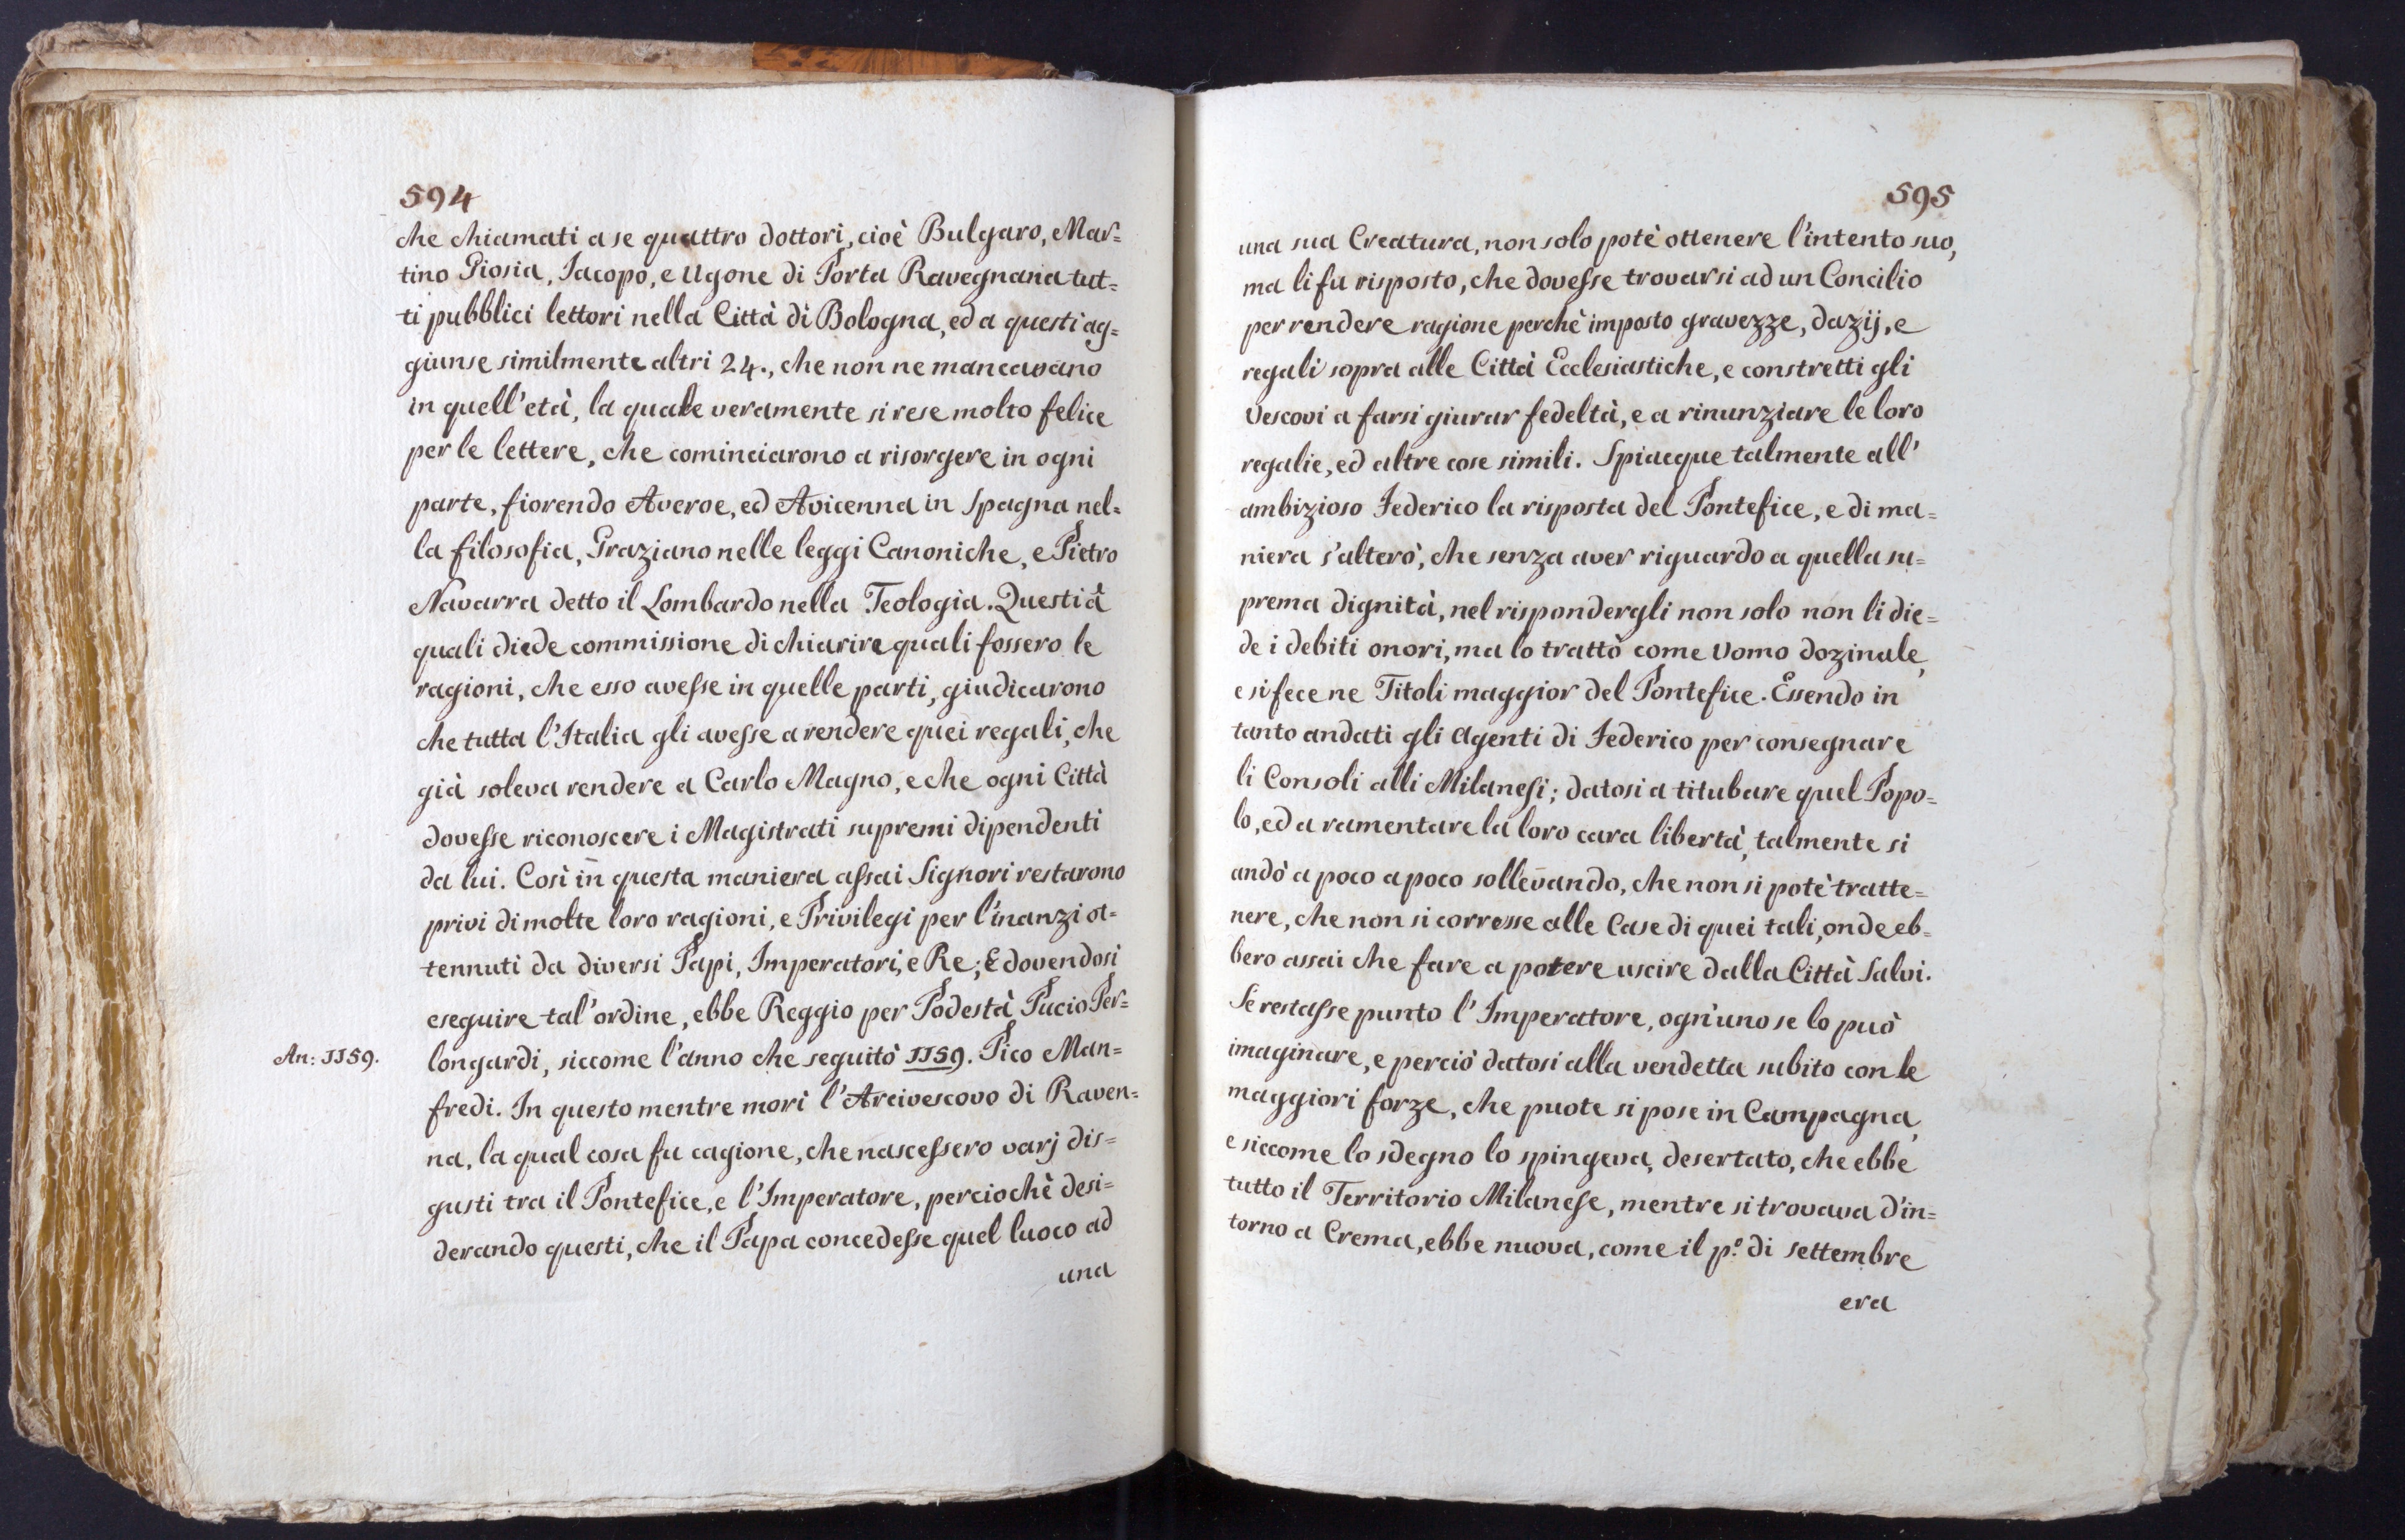 594
che chiamati a se quattro dottori, cioè Bulgaro, Mar=
tino Giosia, Iacopo, e Ugone di Porta Ravegnana tut=
ti pubblici lettori nella Città di Bologna, ed a questi ag=
giunse similmente altri 24., che non ne mancavano
in quell'età, la quale veramente si rese molto felice
per le lettere, che cominciarono a risorgere in ogni
parte, fiorendo Averoe, ed Avicenna in Spagna nel=
la filosofia, Graziano nelle leggi Canoniche, e Pietro
Navarra detto il Lombardo nella Teologia. Questi à
quali diede commissione di chiarire quali fossero le
ragioni, che esso avesse in quelle parti, giudicarono
che tutta l'Italia gli avesse a rendere quei regali, che
già soleva rendere a Carlo Magno, e che ogni Città
dovesse riconoscere i Magistrati supremi dipendenti
da lui. Così in questa maniera assai Signori restarono
privi di molte loro ragioni, e Privilegi per l'inanzi ot=
tennuti da diversi Papi, Imperatori, e Re; E dovendosi
eseguire tal'ordine, ebbe Reggio per Podestà Pucio Per=
An: 1159.
longardi, siccome l'anno che seguitò 1159. Pico Man=
fredi. In questo mentre morì l'Arcivescovo di Raven=
na, la qual cosa fu cagione, che nascessero varj dis=
gusti tra il Pontefice, e l'Imperatore, perciochè desi=
derando questi, che il Papa concedesse quel luoco ad
una
595
una sua Creatura, non solo potè ottenere l'intento suo,
ma li fu risposto, che dovesse trovarsi ad un Concilio
per rendere ragione perchè imposto gravezze, dazij, e
regali sopra alle Città Ecclesiastiche, e constretti gli
Vescovi a farsi giurar fedeltà, e a rinunziare le loro
regalie, ed altre cose simili. Spiacque talmente all'
ambizioso Federico la risposta del Pontefice, e di ma=
niera s'alterò, che senza aver riguardo a quella su=
prema dignità, nel rispondergli non solo non li die=
de i debiti onori, ma lo trattò come Uomo dozinale,
e si fece ne Titoli maggior del Pontefice. Essendo in
tanto andati gli Agenti di Federico per consegnare
li Consoli alli Milanesi; datosi a titubare quel Popo=
lo, ed a ramentare la loro cara libertà, talmente si
andò a poco a poco sollevando, che non si potè tratte=
nere, che non si corresse alle Case di quei tali, onde eb=
bero assai che fare a potere uscire dalla Città Salvi.
Se restasse punto l'Imperatore, ogn'uno se lo può
imaginare, e perciò datosi alla vendetta subito con le
maggiori forze, che puote si pose in Campagna,
e siccome lo sdegno lo spingeva, desertato, che ebbe
tutto il Territorio Milanese, mentre si trovava d'in=
torno a Crema, ebbe nuova, come il p.º di settembre
era